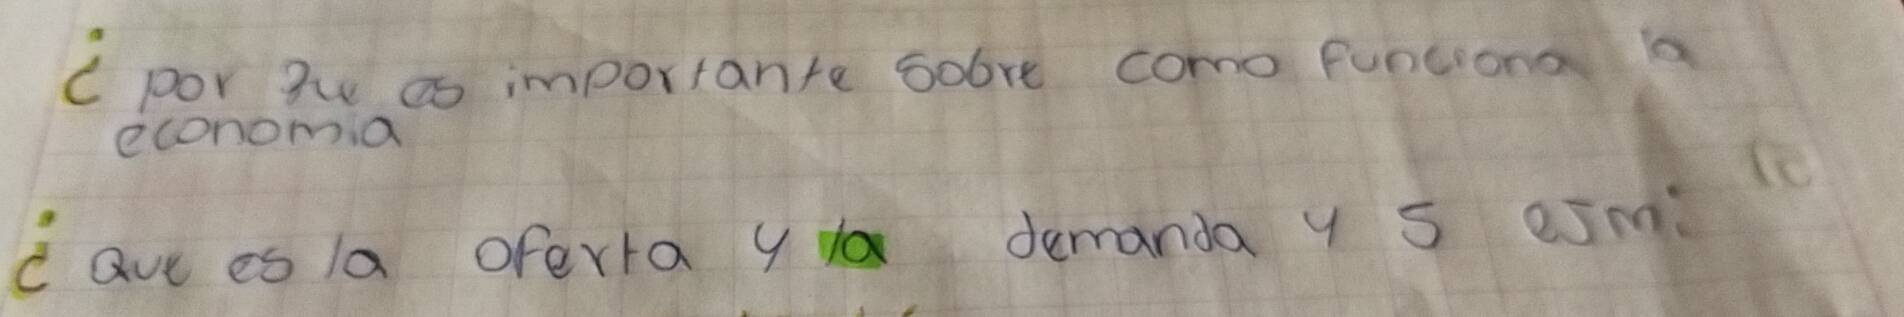 ¿ por que es importante sobre como funciona la
economia
¿ Que es la oferta y la demanda y 5 ejm: